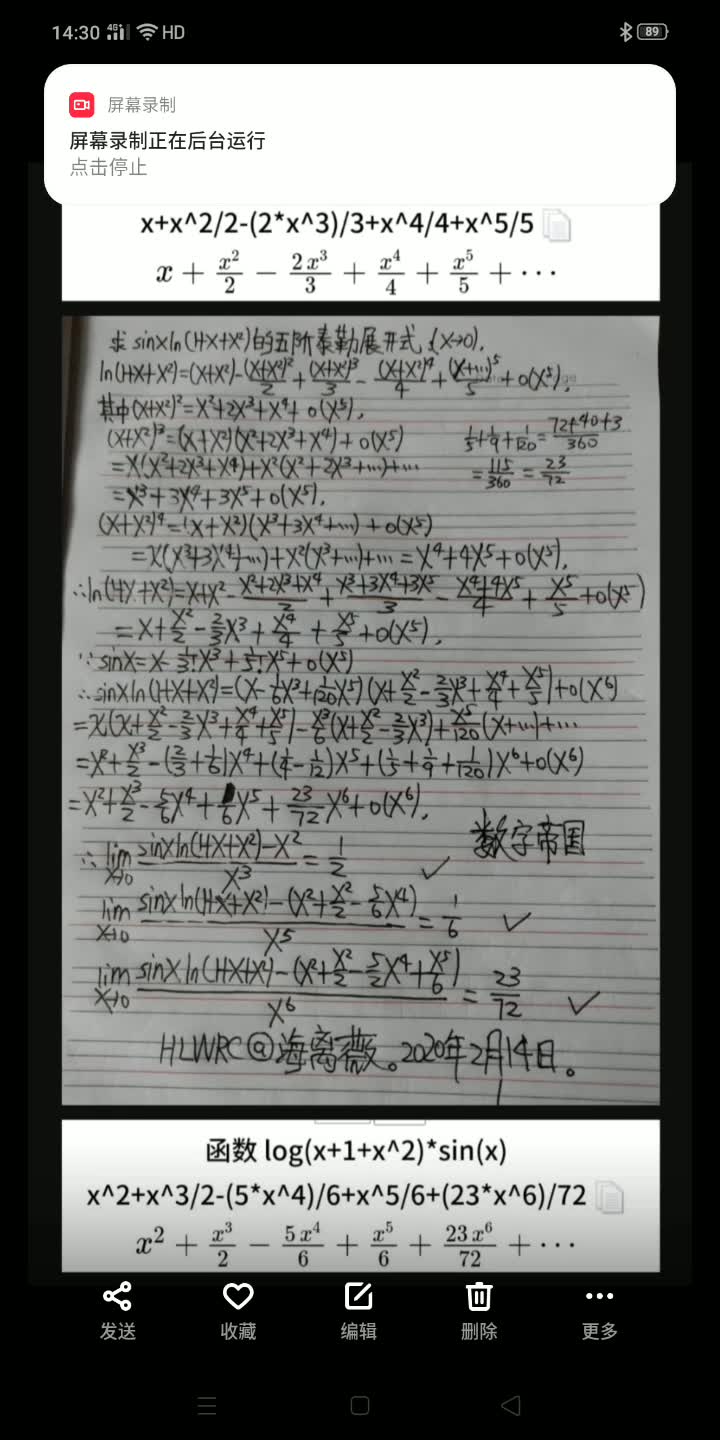 14:30 HD 89
屏幕录制
屏幕录制正在后台运行
点击停止
x+x^2/2-(2*x^3)/3+x^4/4+x^5/5
x + x²/2 − 2x³/3 + x⁴/4 + x⁵/5 + ⋯
求 sinxln(1+x+x²)的五阶泰勒展开式.(x→0).
ln(1+x+x²)=(x+x²)-(x+x²)²/2+(x+x²)³/3-(x+x²)⁴/4+(x+…)⁵/5+o(x⁵),
其中(x+x²)²=x²+2x³+x⁴+o(x⁵),
(x+x²)³=(x+x²)(x²+2x³+x⁴)+o(x⁵) 1/5+1/9+1/120=(72+40+3)/360
=x(x²+2x³+x⁴)+x²(x²+2x³+…)+… =115/360=23/72
=x³+3x⁴+3x⁵+o(x⁵).
(x+x²)⁴=(x+x²)(x³+3x⁴+…)+o(x⁵)
=x(x³+3x⁴+…)+x²(x³+…)+…=x⁴+4x⁵+o(x⁵).
∴ln(1+x+x²)=x+x²-(x²+2x³+x⁴)/2+(x³+3x⁴+3x⁵)/3-(x⁴+4x⁵)/4+x⁵/5+o(x⁵)
=x+x²/2-2/3x³+x⁴/4+x⁵/5+o(x⁵),
∵sinx=x-1/3!x³+1/5!x⁵+o(x⁵)
∴sinxln(1+x+x²)=(x-1/6x³+1/120x⁵)(x+x²/2-2/3x³+x⁴/4+x⁵/5)+o(x⁶)
=x(x+x²/2-2/3x³+x⁴/4+x⁵/5)-x³/6(x+x²/2-2/3x³)+x⁵/120(x+…)+…
=x²+x³/2-(2/3+1/6)x⁴+(1/4-1/12)x⁵+(1/5+1/9+1/120)x⁶+o(x⁶)
=x²+x³/2-5/6x⁴+1/6x⁵+23/72x⁶+o(x⁶).
数字帝国
∴lim x→0 (sinxln(1+x+x²)-x²)/x³=1/2 ✓
lim x→0 (sinxln(1+x+x²)-(x²+x²/2-5/6x⁴))/x⁵=1/6 ✓
lim x→0 (sinxln(1+x+x²)-(x²+x²/2-5/2x⁴+x⁵/6))/x⁶=23/72 ✓
HLWRC@海离薇。2020年2月14日。
函数 log(x+1+x^2)*sin(x)
x^2+x^3/2-(5*x^4)/6+x^5/6+(23*x^6)/72
x² + x³/2 − 5x⁴/6 + x⁵/6 + 23x⁶/72 + ⋯
发送 收藏 编辑 删除 更多